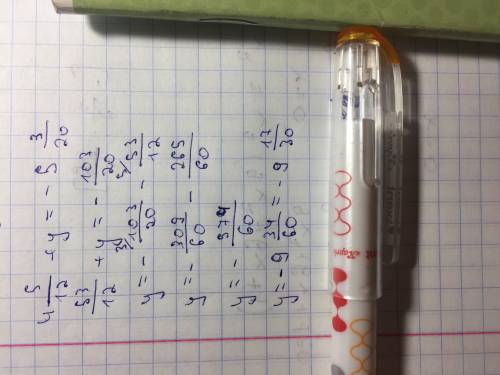 4 5/12 + y = - 5 3/20
53/12 + y = - 103/20
y = - 3/ 103/20 - 5/ 53/12
y = - 309/60 - 265/60
y = - 574/60
y = - 9 34/60 = - 9 17/30